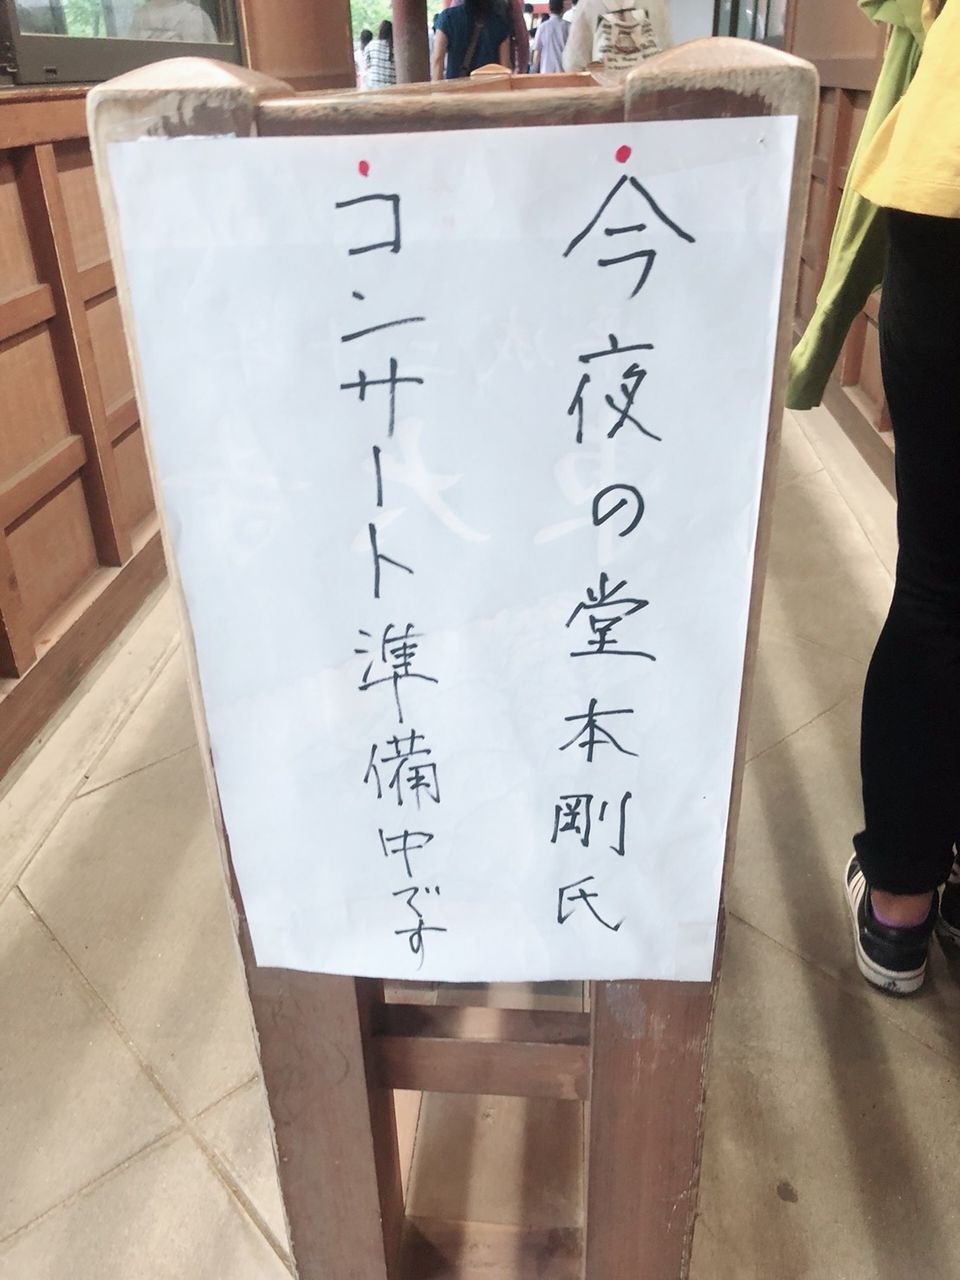 今夜の堂本剛氏
コンサート準備中です